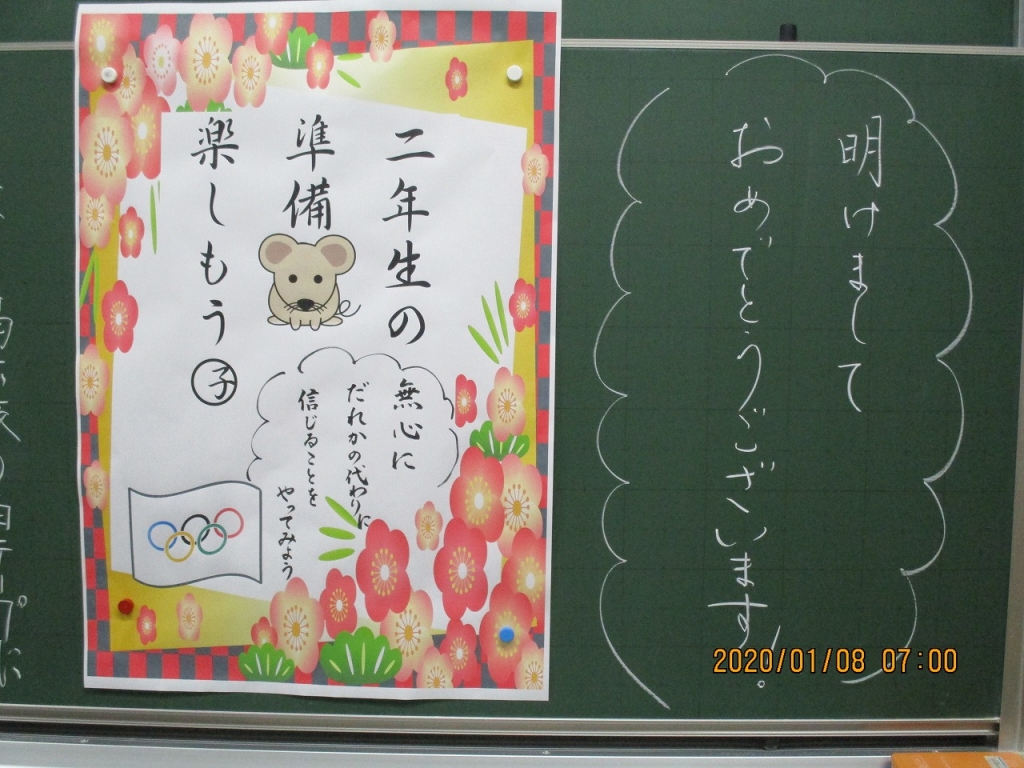 明けまして
おめでとうございます!。
二年生の
準備
楽しもう子
無心に
だれかの代わりに
信じることを
やってみよう
2020/01/08 07:00